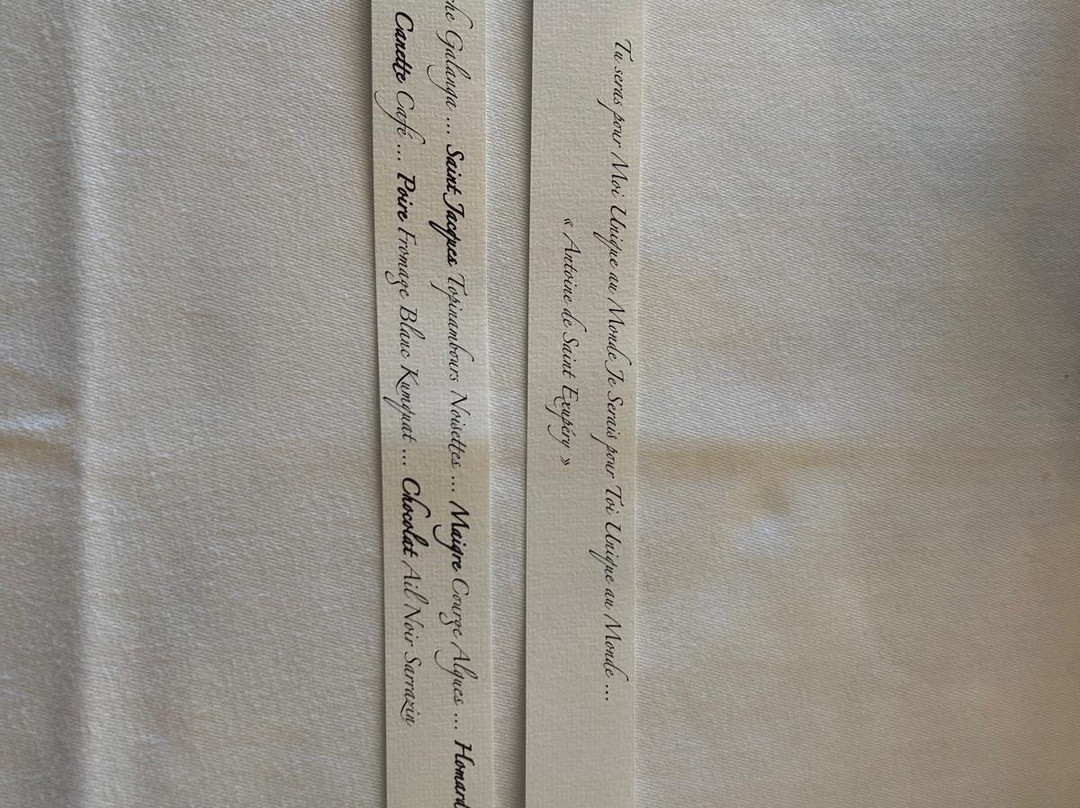 Tu seras pour Moi Unique au Monde Je Serais pour Toi Unique au Monde ...
« Antoine de Saint Exupéry »
Galanga ... Saint Jacques Topinambours Noisettes ... Maigre Courge Algues ... Homard
Canette Café ... Poire Fromage Blanc Kumquat ... Chocolat Ail Noir Sarrazin